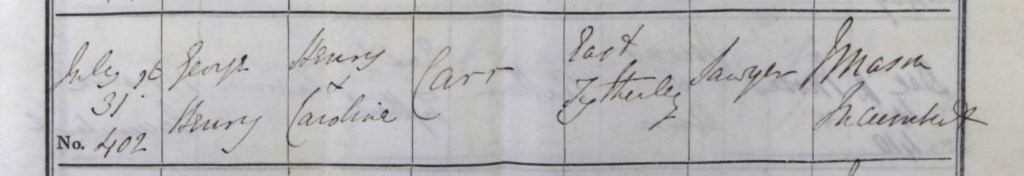 July st
31
No. 402
George
Henry
Henry
&
Caroline
Carr
East
Tytherley
Sawyer
J Mason
Incumbent